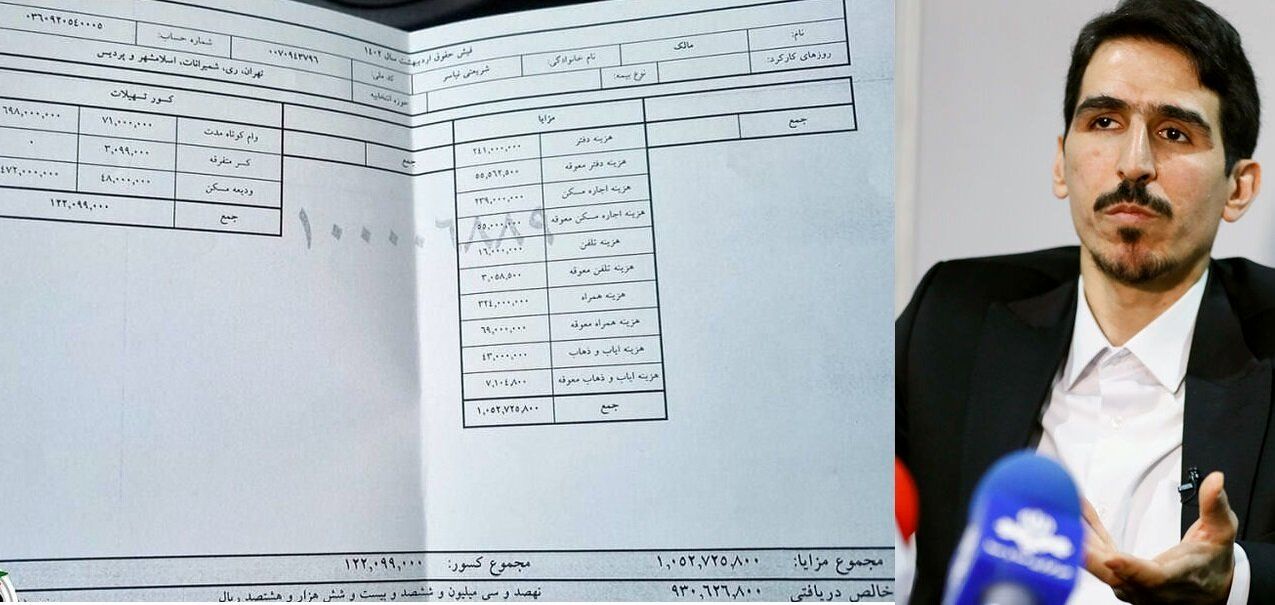 فیش حقوقی اردیبهشت سال ۱۴۰۲
نام: مالک نام خانوادگی: شریعتی نیاسر کد ملی: ۰۰۷۰۹۴۳۷۹۶ شماره حساب: ۰۳۶۰۹۲۰۵۴۰۰۰۵
روزهای کارکرد: نوع بیمه: حوزه انتخابیه تهران، ری، شمیرانات، اسلامشهر و پردیس
جمع
مزایا
هزینه دفتر ۲۴۱,۰۰۰,۰۰۰
هزینه دفتر معوقه ۵۵,۵۶۲,۵۰۰
هزینه اجاره مسکن ۲۳۹,۰۰۰,۰۰۰
هزینه اجاره مسکن معوقه ۵۵,۰۰۰,۰۰۰
هزینه تلفن ۱۶,۰۰۰,۰۰۰
هزینه تلفن معوقه ۳,۰۵۸,۵۰۰
هزینه همراه ۳۲۴,۰۰۰,۰۰۰
هزینه همراه معوقه ۶۹,۰۰۰,۰۰۰
هزینه ایاب و ذهاب ۴۳,۰۰۰,۰۰۰
هزینه ایاب و ذهاب معوقه ۷,۱۰۴,۸۰۰
جمع ۱,۰۵۲,۷۲۵,۸۰۰
جمع
کسور تسهیلات
وام کوتاه مدت ۷۱,۰۰۰,۰۰۰ ۶۹۸,۰۰۰,۰۰۰
کسر متفرقه ۳,۰۹۹,۰۰۰ ۰
ودیعه مسکن ۴۸,۰۰۰,۰۰۰ ۴۷۲,۰۰۰,۰۰۰
جمع ۱۲۲,۰۹۹,۰۰۰
مجموع مزایا: ۱,۰۵۲,۷۲۵,۸۰۰ مجموع کسور: ۱۲۲,۰۹۹,۰۰۰
خالص دریافتی ۹۳۰,۶۲۶,۸۰۰ نهصد و سی میلیون و ششصد و بیست و شش هزار و هشتصد ریال